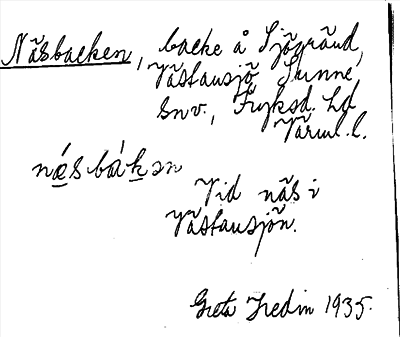 Näsbacken, backe å Sjögränd,
Västansjö Sunne,
Snv., Fryksd. hd
Värml. l.
næsbákən
Vid näs i
Västansjön.
Greta Hedin 1935.